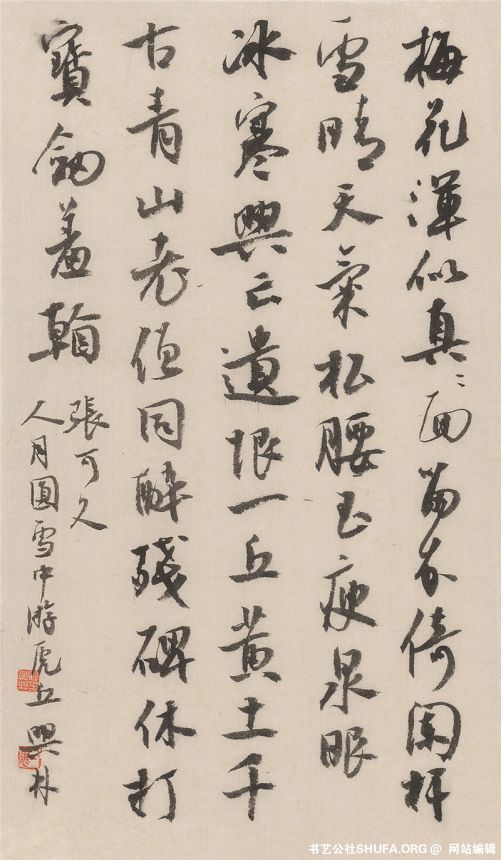 梅花渾似真〻面留我倚闌杆
雪晴天氣松腰玉瘦泉眼
冰寒興亡遺恨一丘黃土千
古青山老僧同醉殘碑休打
寶劍羞看
張可久
人月圓雪中游虎丘 興林
书艺公社SHUFA.ORG @ 网站编辑